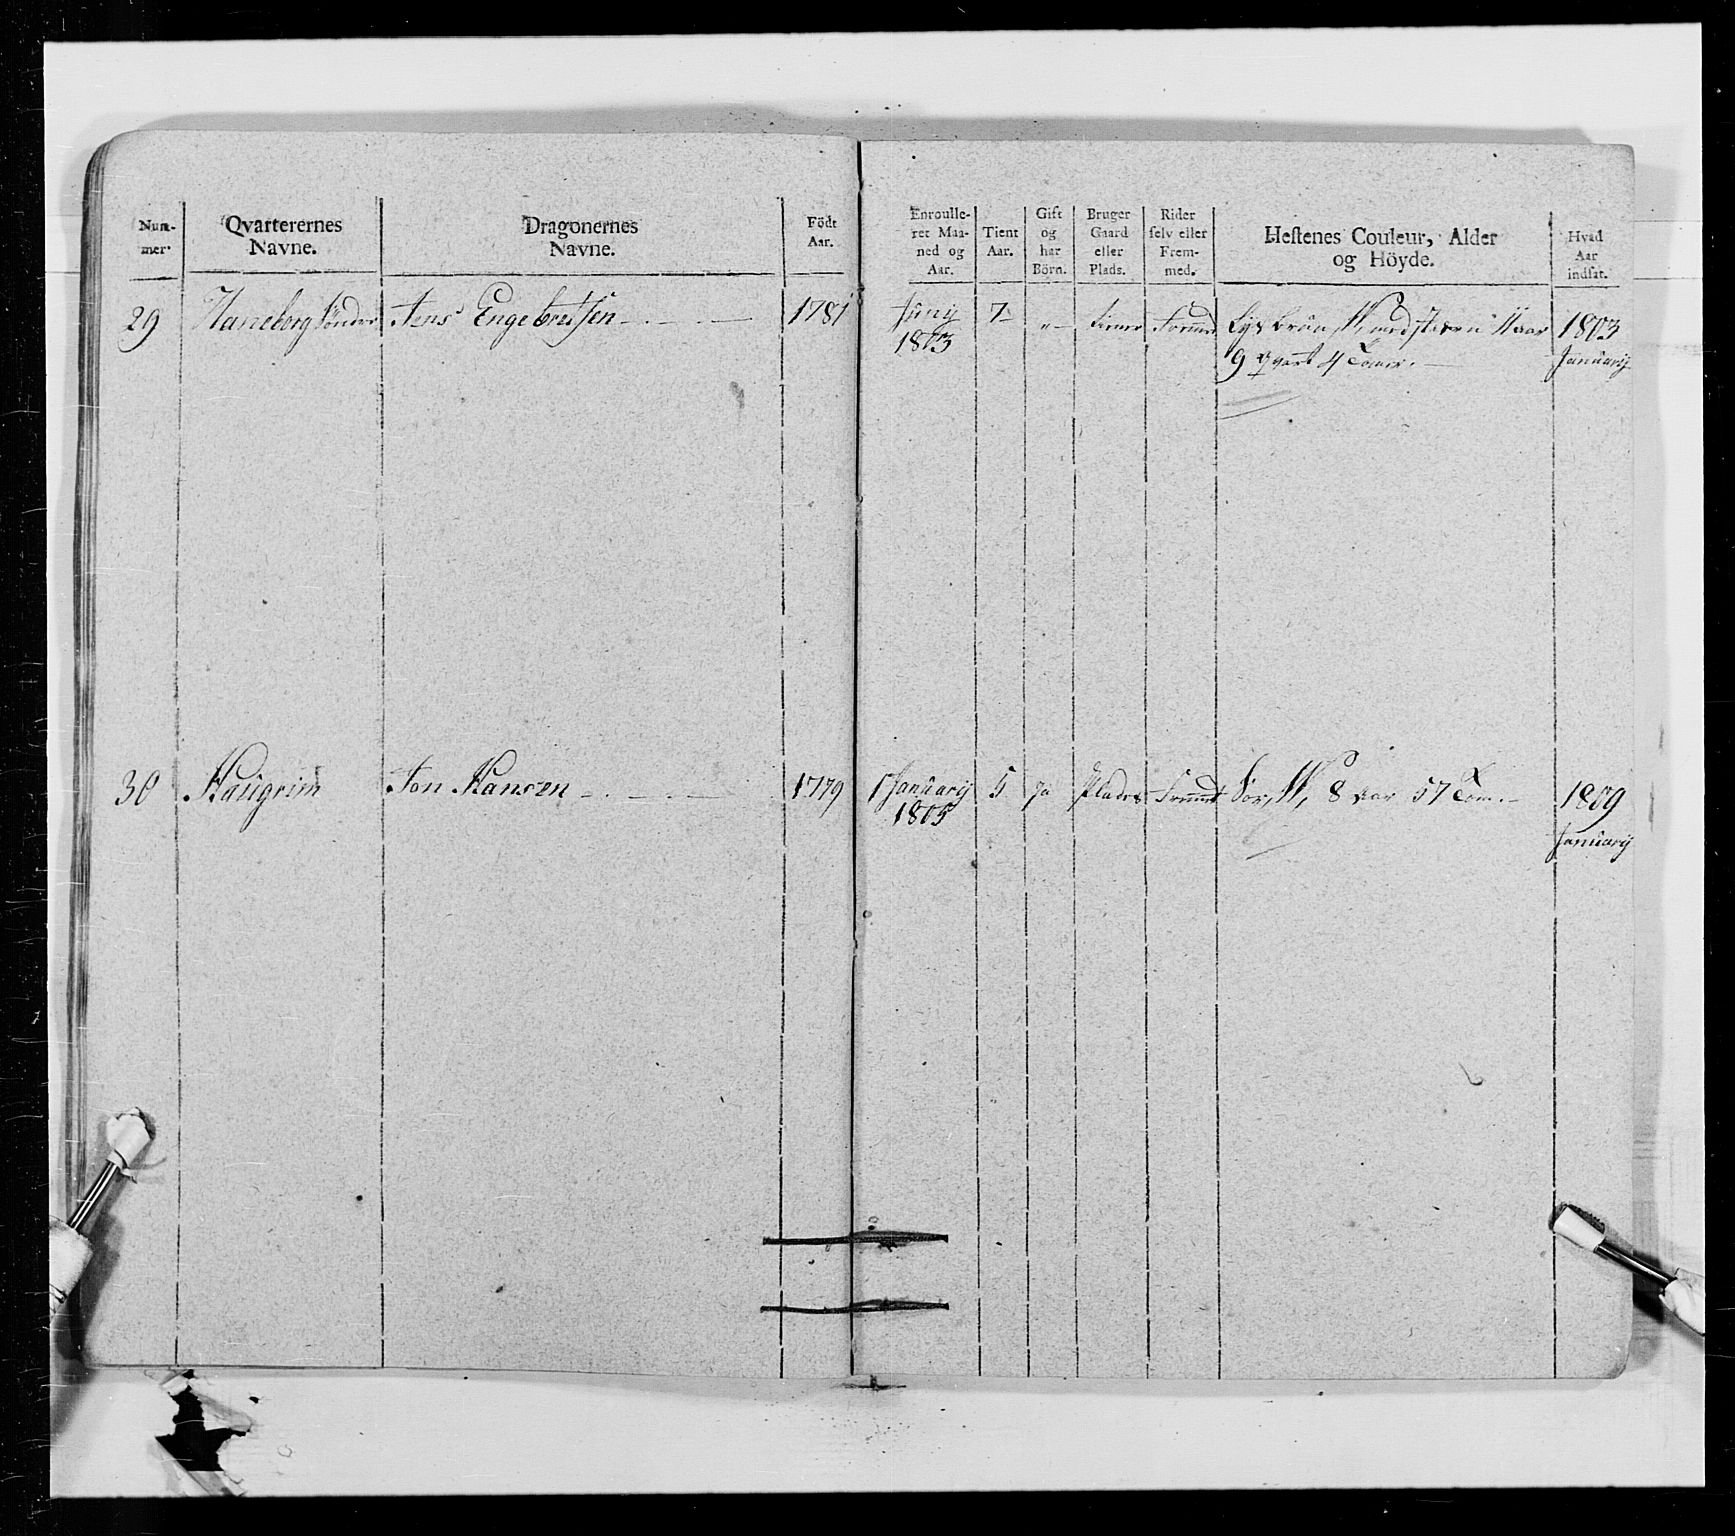 Num-
mer.
Qvarterernes
Navne.
Dragonernes
Navne.
Födt
Aar.
Enroulle-
ret Maa-
ned og
Aar.
Tient
Aar.
Gift
og
har
Börn.
Bruger
Gaard
eller
Plads.
Rider
selv eller
Frem-
med.
Hestenes Couleur, Alder
og Höyde.
Hvad
Aar
indsat.
29 Haneborg Sönder Jens Engebretsen 1781 Junij 7 „ tiener Fremmed Lys brun, W, med 11 aar 1803
1803 9 qvart 4 Tom. Januarij
30 Haugrim Jon Hansen 1779 1 Januarij 5 ja Plads Fremmed Sor, W, 8 aar 57 Tom. 1809
1805 Januarij